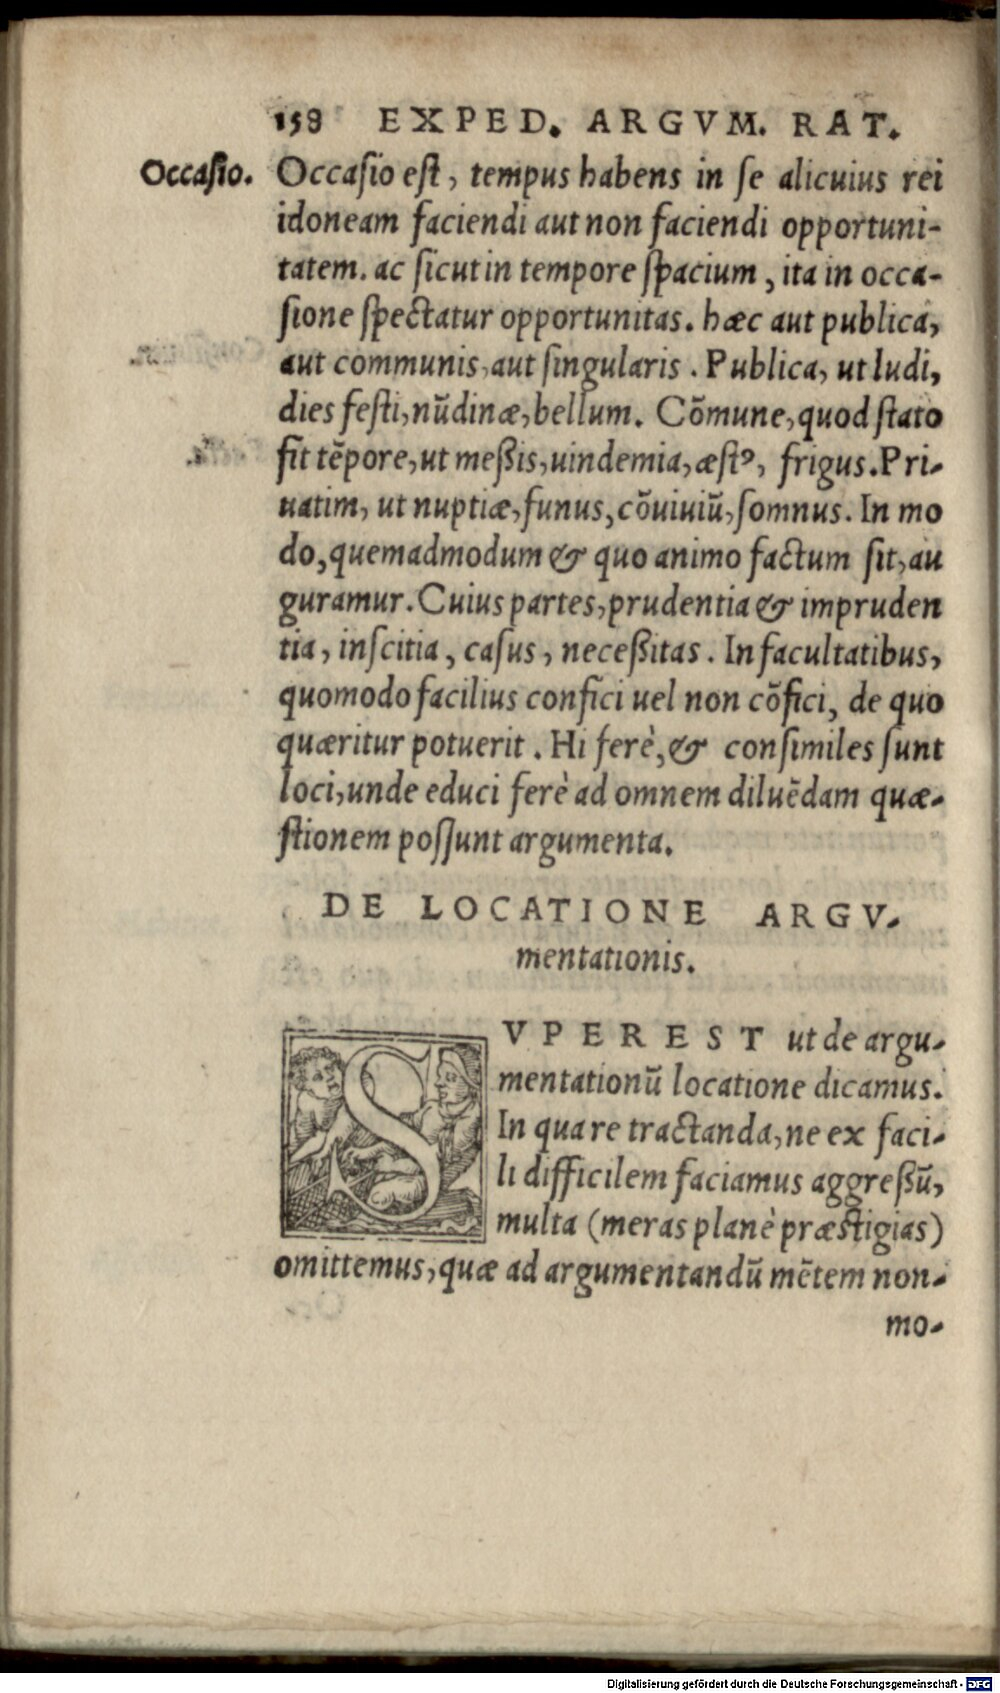 158 EXPED. ARGVM. RAT.
Occasio. Occasio est, tempus habens in se alicuius rei
idoneam faciendi aut non faciendi opportuni-
tatem. ac sicut in tempore spacium, ita in occa-
sione spectatur opportunitas. hæc aut publica,
aut communis, aut singularis. Publica, ut ludi,
dies festi, nūdinæ, bellum. Cōmune, quod stato
fit tēpore, ut meßis, uindemia, æstꝰ, frigus. Pri-
uatim, ut nuptiæ, funus, cōuiuiū, somnus. In mo
do, quemadmodum & quo animo factum sit, au
guramur. Cuius partes, prudentia & impruden
tia, inscitia, casus, neceßitas. In facultatibus,
quomodo facilius confici uel non cōfici, de quo
quæritur potuerit. Hi ferè, & consimiles sunt
loci, unde educi ferè ad omnem diluēdam quæ-
stionem possunt argumenta.
DE LOCATIONE ARGV-
mentationis.
SVPEREST ut de argu-
mentationū locatione dicamus.
In qua re tractanda, ne ex faci-
li difficilem faciamus aggreßū,
multa (meras planè præstigias)
omittemus, quæ ad argumentandū mētem non-
mo-
Digitalisierung gefördert durch die Deutsche Forschungsgemeinschaft - DFG